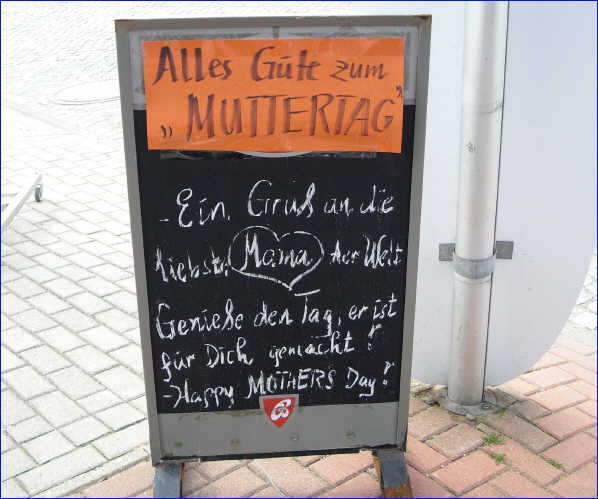 Alles Gute zum
„MUTTERTAG“
- Ein Gruß an die
liebste Mama der Welt
Genieße den Tag, er ist
für Dich gemacht!
- Happy MOTHERS Day!